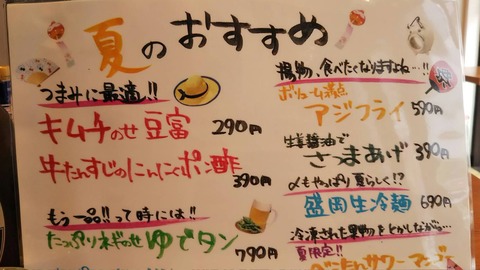 夏のおすすめ
つまみに最適!!
キムチのせ豆富 290円
牛たんすじのにんにくポン酢 390円
もう一品!!って時には!!
たっぷりネギのせゆでタン 790円
揚物、食べたくなりますよね…!!
ボリューム満点
アジフライ 590円
生姜醤油で
さつまあげ 390円
〆もやっぱり夏らしく!?
盛岡生冷麺 690円
冷凍された果物をとかしながら…
夏限定!!